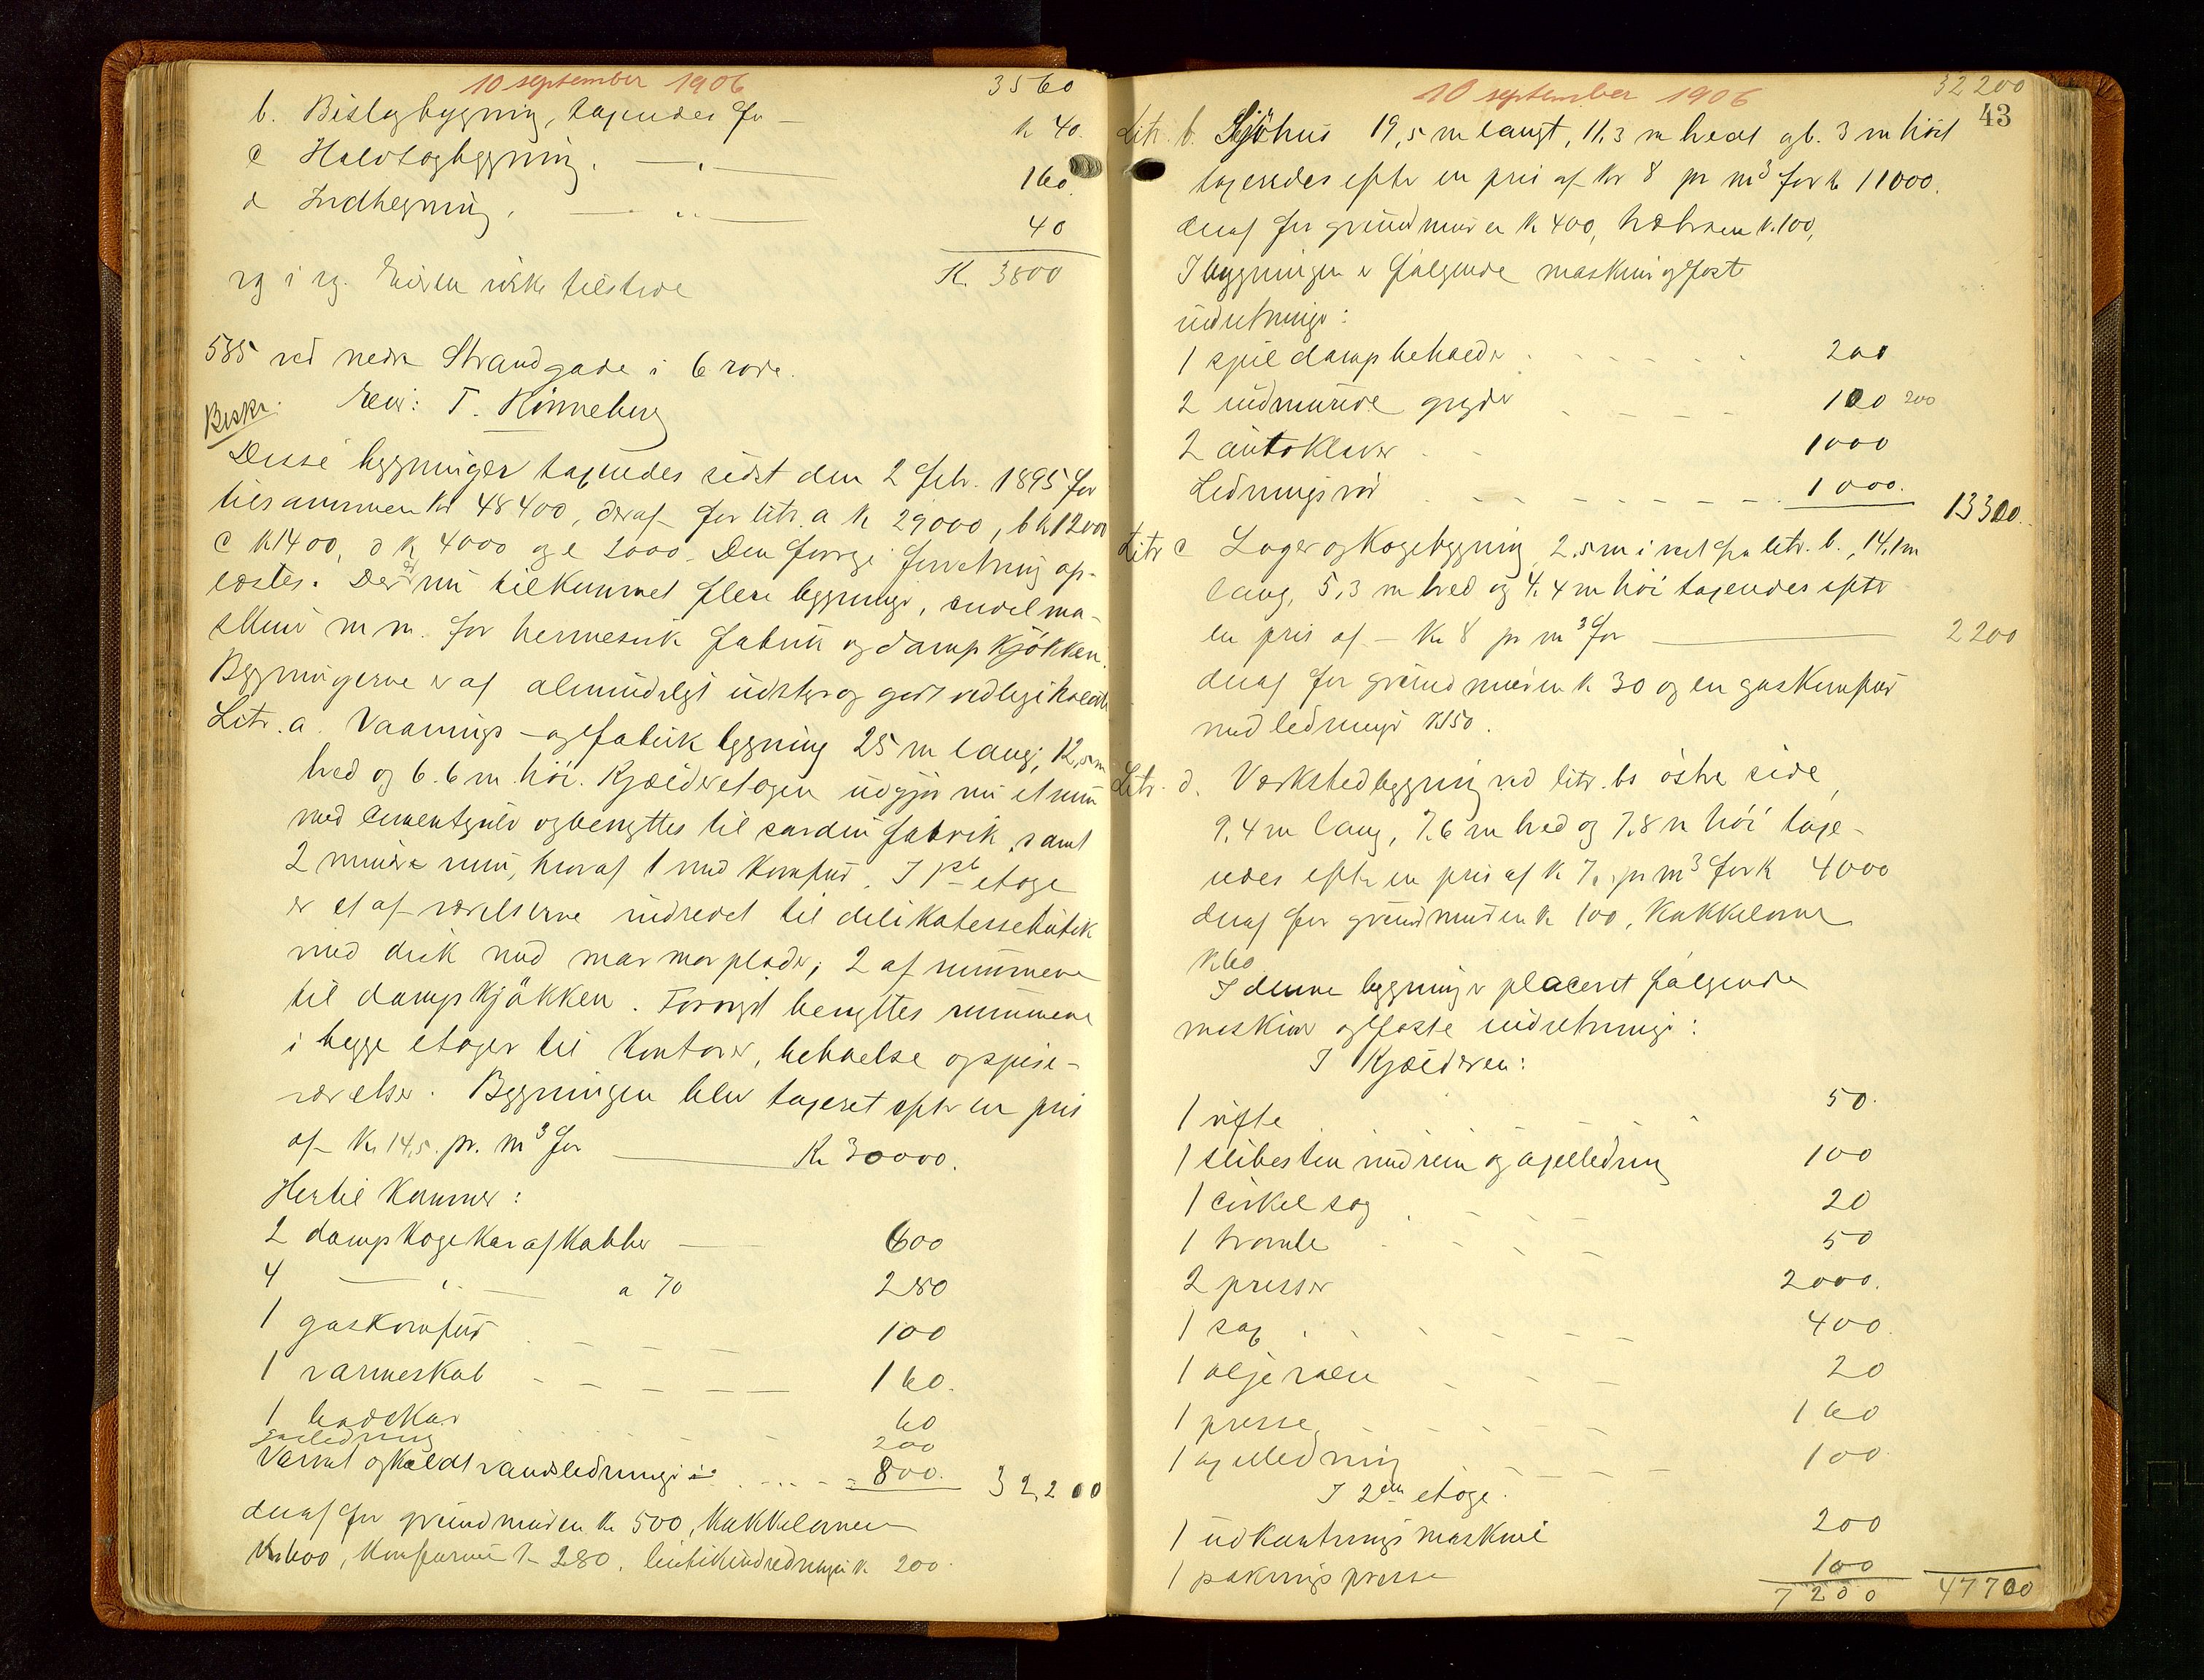 10 september 1906
3560
b. Bislagbygning, taxeredes for — k 40.
c Halvtagbygning. — " — 160.
d Indhegning. — " — 40
K. 3800
og i sg. Eieren ikke tilstede
585 ved nedre Strandgade i 6 rode.
Beskr: Eier: T. Rönneberg
Disse bygninger taxeredes sidst den 2 febr. 1895 for
tilsammen kr 48400, deraf for litr. a k 29000, b k 12000
c k 1400, d k 4000 og e 2000. Den forrige forretning op-
læstes. Der er nu tilkommet flere bygninger, endel ma-
skiner m m. for hermetisk fabrik og dampkjökken.
Bygningerne er af almindeligt udstyr og godt vedligeholdte
Litr. a. Vaanings- og fabrik bygning 25 m lang, 12,5 m
bred og 6.6 m höi. Kjælderetagen udgjör nu et rum
med cementgulv og benyttes til sardin fabrik, samt
2 mindre rum, hvoraf 1 med komfur. I 1ste etage
er et af værelserne indredet til delikatessebutik
med disk med marmorplader, 2 af rummene
til dampkjökken. Forövrigt benyttes rummene
i begge etager til kontorer, beboelse og spise-
værelser. Bygningen blev taxeret efter en pris
af kr 14,5. pr. m3 for — Kr 30000.
Hertil kommer:
2 dampkogekar af kobber — 600
4 — " — a 70 280
1 gaskomfur 100
1 varmeskab 160.
1 badekar 60
gasledning 200
Varmt og koldtvandsledninger 800. 32,200
deraf for grundmuren kr 500, kakkelovnene
kr 600, komfurene k 280, butikindredningen k 200.
10 september 1906
32200
43
Litr. b. Sjöhus 19,5 m langt, 11,3 m bredt og b. 3 m höit
taxeredes efter en pris af kr 8 pr m3 for k 11000.
deraf for grundmuren k 400, k. 100,
I bygningen er fölgende maskiner og faste
indretninger:
1 dampbeholder 200
2 indmurede gryder 100 200
2 autoklaver 1000
Ledningsrör 1000. 13300.
Litr c Lager og Kogebygning 2,5 m i vest fra litr. b., 14,1 m
lang, 5,3 m bred og 4.4 m höi taxeredes efter
en pris af — Kr 8 pr m3 for — 2200
deraf for grundmuren k 30 og en gaskomfur
med ledninger k 150.
Litr. d. Værkstedbygning ved litr. bs östre side,
9,4 m lang, 7.6 m bred og 7.8 m höi taxe-
redes efter en pris af k 7, pr m3 for k 4000
deraf for grundmuren k 100, kakkelovne
k 60
I denne bygning er placeret fölgende
maskiner og faste indretninger:
I Kjælderen:
1 vifte 50.
1 slibesten med reim og axelledning 100
1 cirkelsag 20
1 tromle 50
2 presser 2000.
1 sag 400.
1 20
1 presse 160
1 axelledning 100.
I 2den etage.
1 udkantningsmaskine 200
1 pakningspresse 100
7200 47700